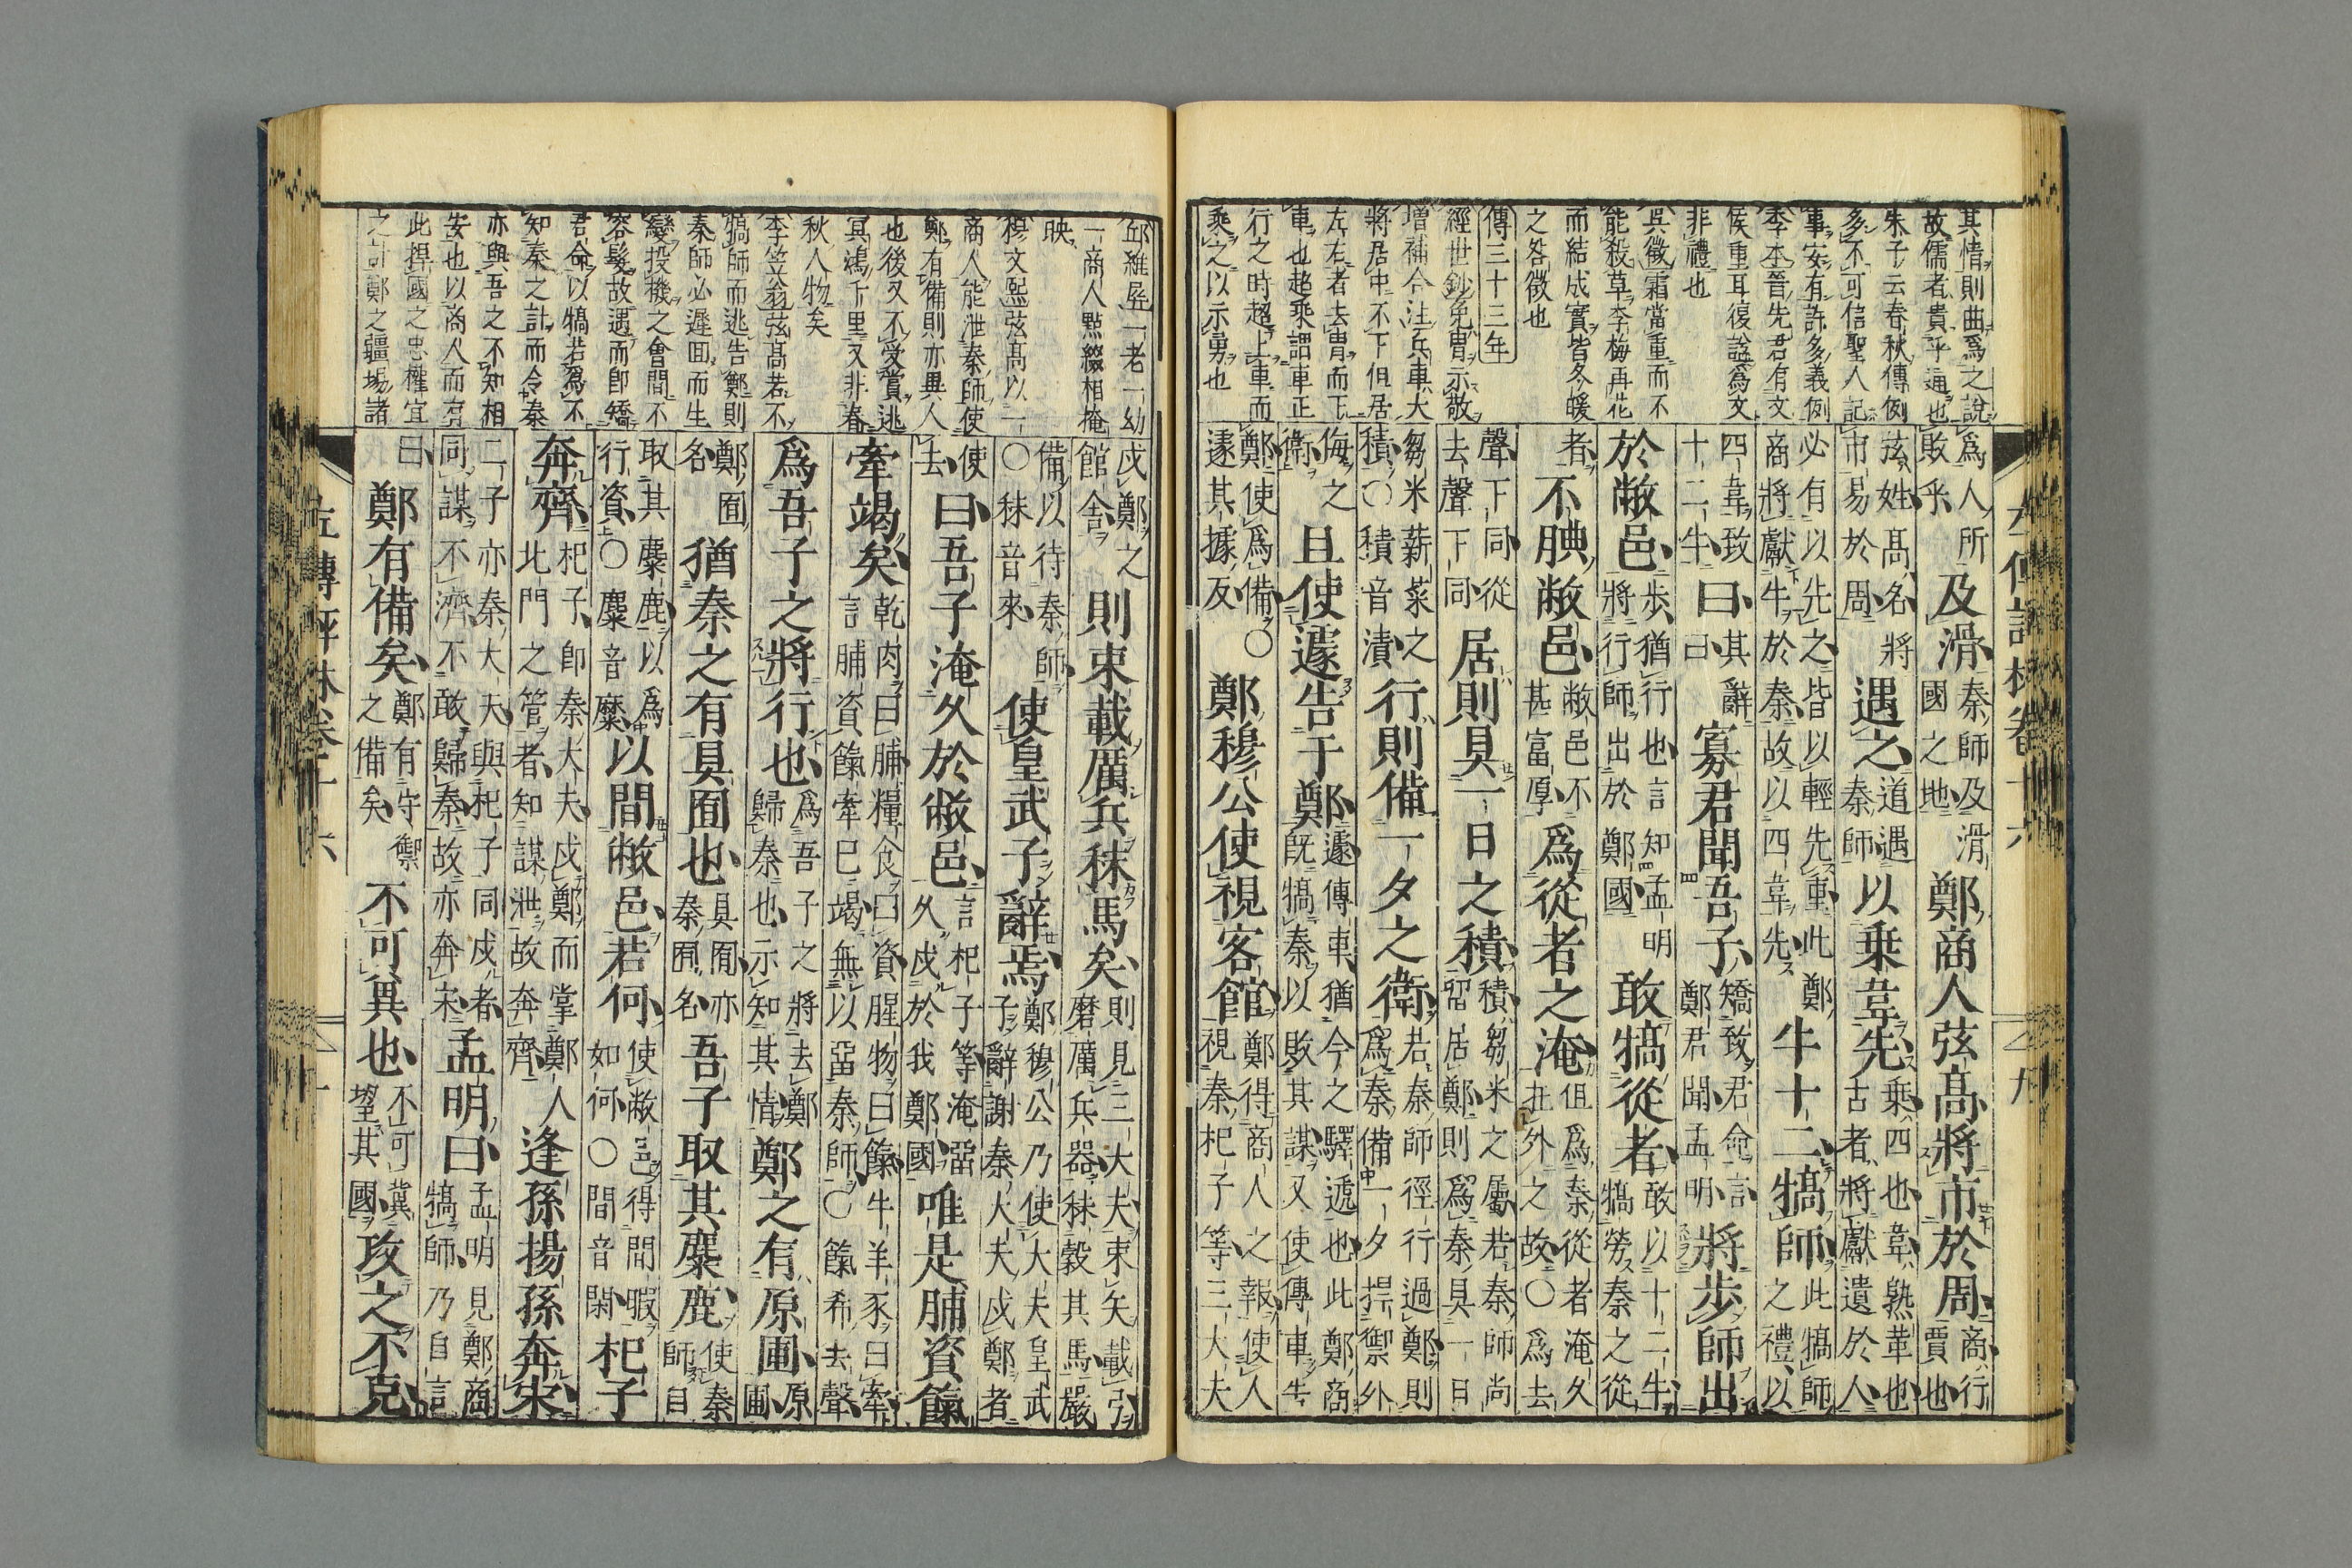 其情則曲爲之說
故儒者貴乎通也
朱子云春秋傳例
多不可信聖人記
事安有許多義例
季本晉先君有文
侯重耳復諡爲文
非禮也
呉徵霜當重而不
能殺草李梅再花
而結成實皆冬暖
之咎徵也
傳三十三年
經世鈔免冑示敬
增補合注兵車大
將居中不下但居
左右者去冑而下
車也超乗謂車正
行之時超上車而
乗之以示勇也
爲人所敗乎及滑秦師及滑國之地鄭商人弦髙將市於周商行賈也
弦姓髙名將市易於周遇之道遇秦師以乗韋先乗四也韋熟革也古者將獻遺於人
必有以先之皆以輕先重此鄭商將獻牛於秦故以四韋先牛十二犒師此犒師之禮以
四韋致十二牛曰其辭曰寡君聞吾子矯致君命言鄭君聞孟明將步師出
於敝邑步猶行也言知孟明將行師出於鄭國敢犒從者敢以十二牛犒勞秦之從
者不腆敝邑敝邑不甚富厚爲從者之淹但爲秦從者淹久在外之故○爲去
聲下同從去聲下同居則具一日之積積芻米之屬若秦師尚留居鄭則爲秦具一日
芻米薪菜之積○積音漬行則備一夕之衛若秦師徑行過鄭則爲秦備一夕捍禦外
侮之衛且使遽告于鄭遽傳車猶今之驛遞也此鄭商既犒秦以敗其謀又使傳車告
鄭使爲備○遽其據反鄭穆公使視客館鄭得商人之報使人視秦杞子等三大夫
左傳評林卷十六
九
邱維屏一老一幼
一商人點綴相掩
映
穆文熙弦髙以一
商人能泄秦師使
鄭有備則亦異人
也後又不受賞逃
冥鴻千里又非春
秋人物矣
李笠翁弦髙若不
犒師而逃告鄭則
秦師必遲回而生
變投機之會間不
容髮故遇而卽矯
君命以犒若爲不
知秦之計而令秦
亦與吾之不知相
安也以商人而有
此捍國之忠權宜
之計鄭之疆場諸
戍鄭之館舍則束載厲兵秣馬矣則見三大夫束矢載弓磨厲兵器秣穀其馬嚴
備以待秦師○秣音末使皇武子辭焉鄭穆公乃使大夫皇武子辭謝秦大夫戍鄭者
使去曰吾子淹久於敝邑言杞子等淹留久戍於我鄭國唯是脯資餼
牽竭矣乾肉曰脯糧食曰資腥物曰餼牛羊豕曰牽言脯資餼牽已竭無以留秦師○餼希去聲
爲吾子之將行也爲吾子之將去鄭歸秦也示知其情鄭之有原圃原圃
鄭囿名猶秦之有具囿也具囿亦秦囿名吾子取其麋鹿使秦師自
取其麋鹿以爲行資○麋音糜以間敝邑若何使敝邑得間暇如何○間音閑杞子
奔齊杞子卽秦大夫戍鄭而掌鄭人北門之管者知謀泄故奔齊逢孫揚孫奔宋
二子亦秦大夫與杞子同戍者同謀不濟不敢歸秦故亦奔宋孟明曰孟明見鄭商犒師乃自言
曰鄭有備矣鄭有守禦之備矣不可冀也不可冀望其國攻之不克
左傳評林卷十六
十